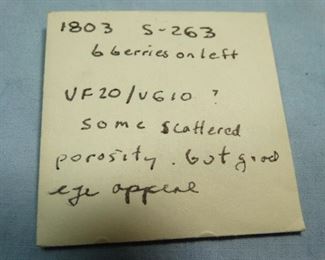 1803 S-263
6 berries on left
VF20/VG10 ?
some scattered
porosity. but good
eye appeal